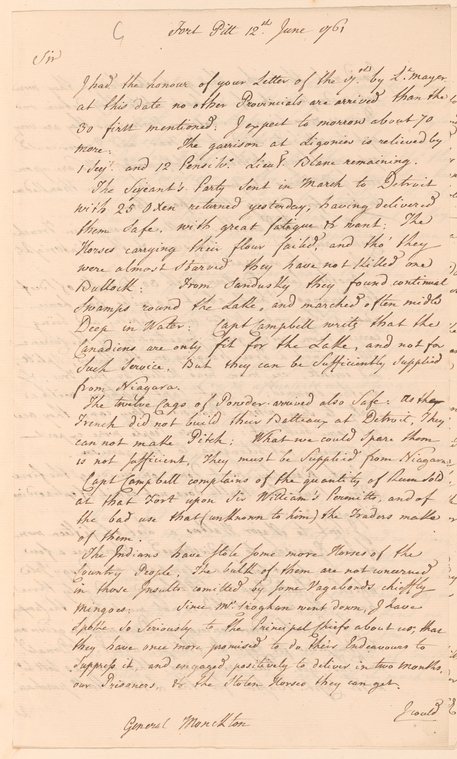 Fort Pitt 12th June 1761
Sir
I had the honour of your Letter of the by Lt Mayer
at this date no other Provincials are arrived than the
30 first mentioned: I expect to morrow about 70
more. The garrison at Ligonier is relieved by
1 Serjt and 12 Pensilvs. Lieut Blane remaining.
The Serjeant's Party sent in March to Detroit
with 25 Oxen returned yesterday, having delivered
them Safe, with great fatigue & want: The
Horses carrying their flour failed, and tho' they
were almost Starved they have not killed one
Bullock: From Sandusky they found continual
Swamps round the Lake, and marched often midle
Deep in Water: Capt Campbell writs that the
Canadiens are only fit for the Lake, and not for
Such Service. But they can be Sufficiently Supplied
from Niagara.
The twelve Cags of Powder arrived also Safe: As the
French did not build their Batteaux at Detroit, They
can not make Pitch: What we could Spare them
is not Sufficient, They must be Supplied from Niagara
Capt Campbell complains of the quantity of Rum Sold
at that Fort upon Sir William's Permitts, and of
the bad use that (unknown to him) the Traders make
of them.
The Indians have Stole Some more Horses of the
Country People, The bulk of them are not concerned
in those Insults comitted by Some Vagabonds chieffly
Mingoes: Since Mr Croghan went down, I have
Spoke So Seriously to the Principal Chiefs about us, that
they have once more promised to do their Endeavours to
Suppress it, and engaged positively to deliver in two months,
our Prisoners, & the Stolen Horses they can get.
I could
General Monckton